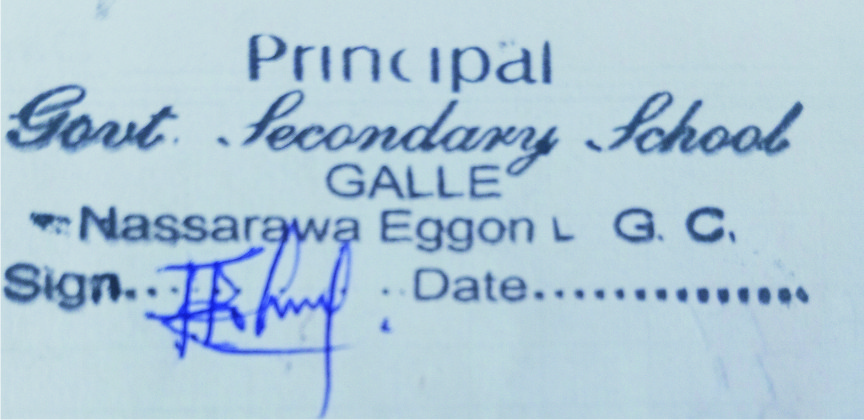 Principal
Govt. Secondary School
GALLE
Nassarawa Eggon L G. C.
Sign..... Date.................